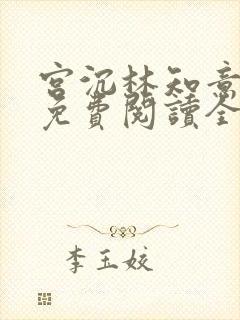 宮沉林知意
免費閱讀全
李玉姣